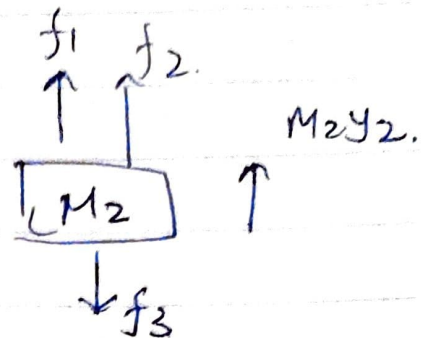 f1
f2.
M2y2.
M2
f3